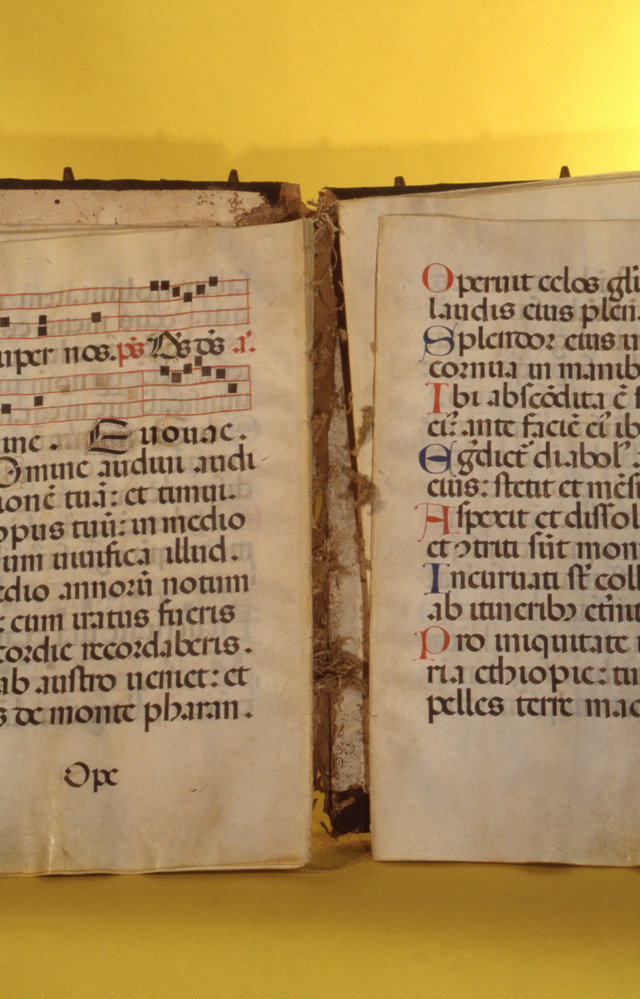 uper nos. ps Ds ds a.
ine. Euouae.
Domine audiui audi
ionē tuā: et timui.
opus tuū: in medio
um uiuifica illud.
edio annorū notum
: cum iratus fueris
cordie recordaberis.
ab austro ueniet: et
s de monte pharan.
Ope
Operuit celos gl̄i
laudis eius plen
Splendor eius u
cornua in manib
Ibi abscōdita ē f
ei: ante faciē ei ib
Egdiet diabol
eius: stetit et mēsu
Aspexit et dissol
et ↄtriti sūt mon
Incuruati st̄ coll
ab itineribꝫ etnit
Pro iniquitate
ria ethiopie: tu
pelles terre mad